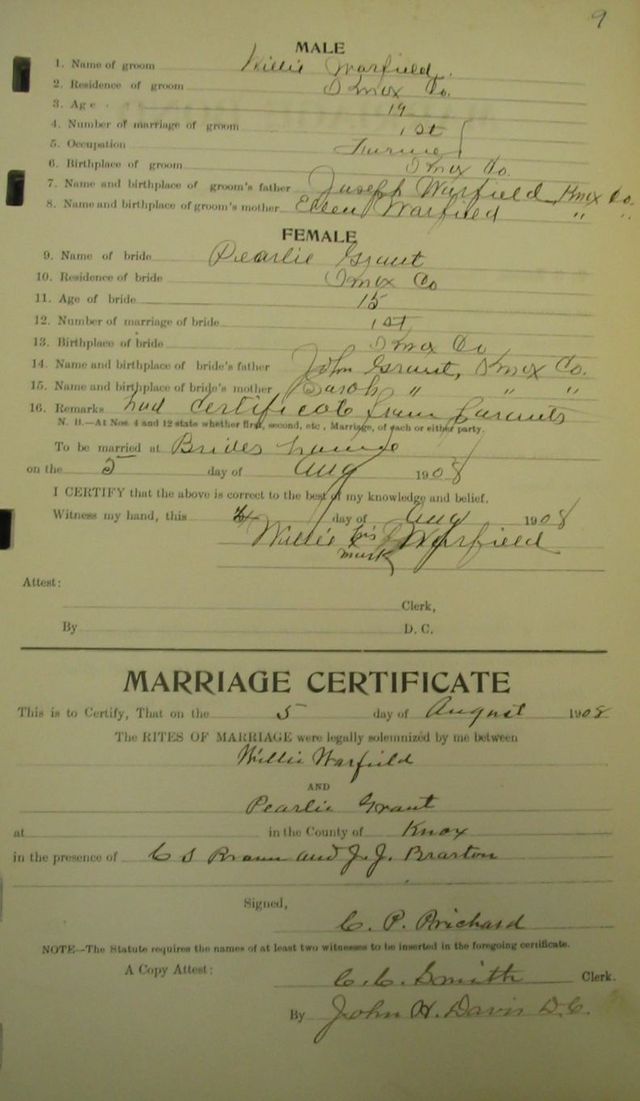 9
MALE
1. Name of groom Willie Warfield.
2. Residence of groom Knox Co.
3. Age 19
4. Number of marriage of groom 1st
5. Occupation Farmer
6. Birthplace of groom Knox Co.
7. Name and birthplace of groom's father Joseph Warfield Knox Co.
8. Name and birthplace of groom's mother Ellen Warfield " "
FEMALE
9. Name of bride Pearlie Grant
10. Residence of bride Knox Co
11. Age of bride 15
12. Number of marriage of bride 1st
13. Birthplace of bride Knox Co
14. Name and birthplace of bride's father John Grant, Knox Co.
15. Name and birthplace of bride's mother Sarah " " "
16. Remarks had certificate from parents
N. B.—At Nos. 4 and 12 state whether first, second, etc., Marriage, of each or either party.
To be married at Brides home
on the 5 day of Aug 1908
I CERTIFY that the above is correct to the best of my knowledge and belief.
Witness my hand, this 4 day of Aug 1908
Willie his X Warfield
mark
Attest:
Clerk,
By D. C.
MARRIAGE CERTIFICATE
This is to Certify, That on the 5 day of August 1908
The RITES OF MARRIAGE were legally solemnized by me between
Willie Warfield
AND
Pearlie Grant
at in the County of Knox
in the presence of C S and J. J. Braxton
Signed,
C. P. Prichard
NOTE—The Statute requires the names of at least two witnesses to be inserted in the foregoing certificate.
A Copy Attest: C. C. Smith Clerk.
By John H. Davis D.C.